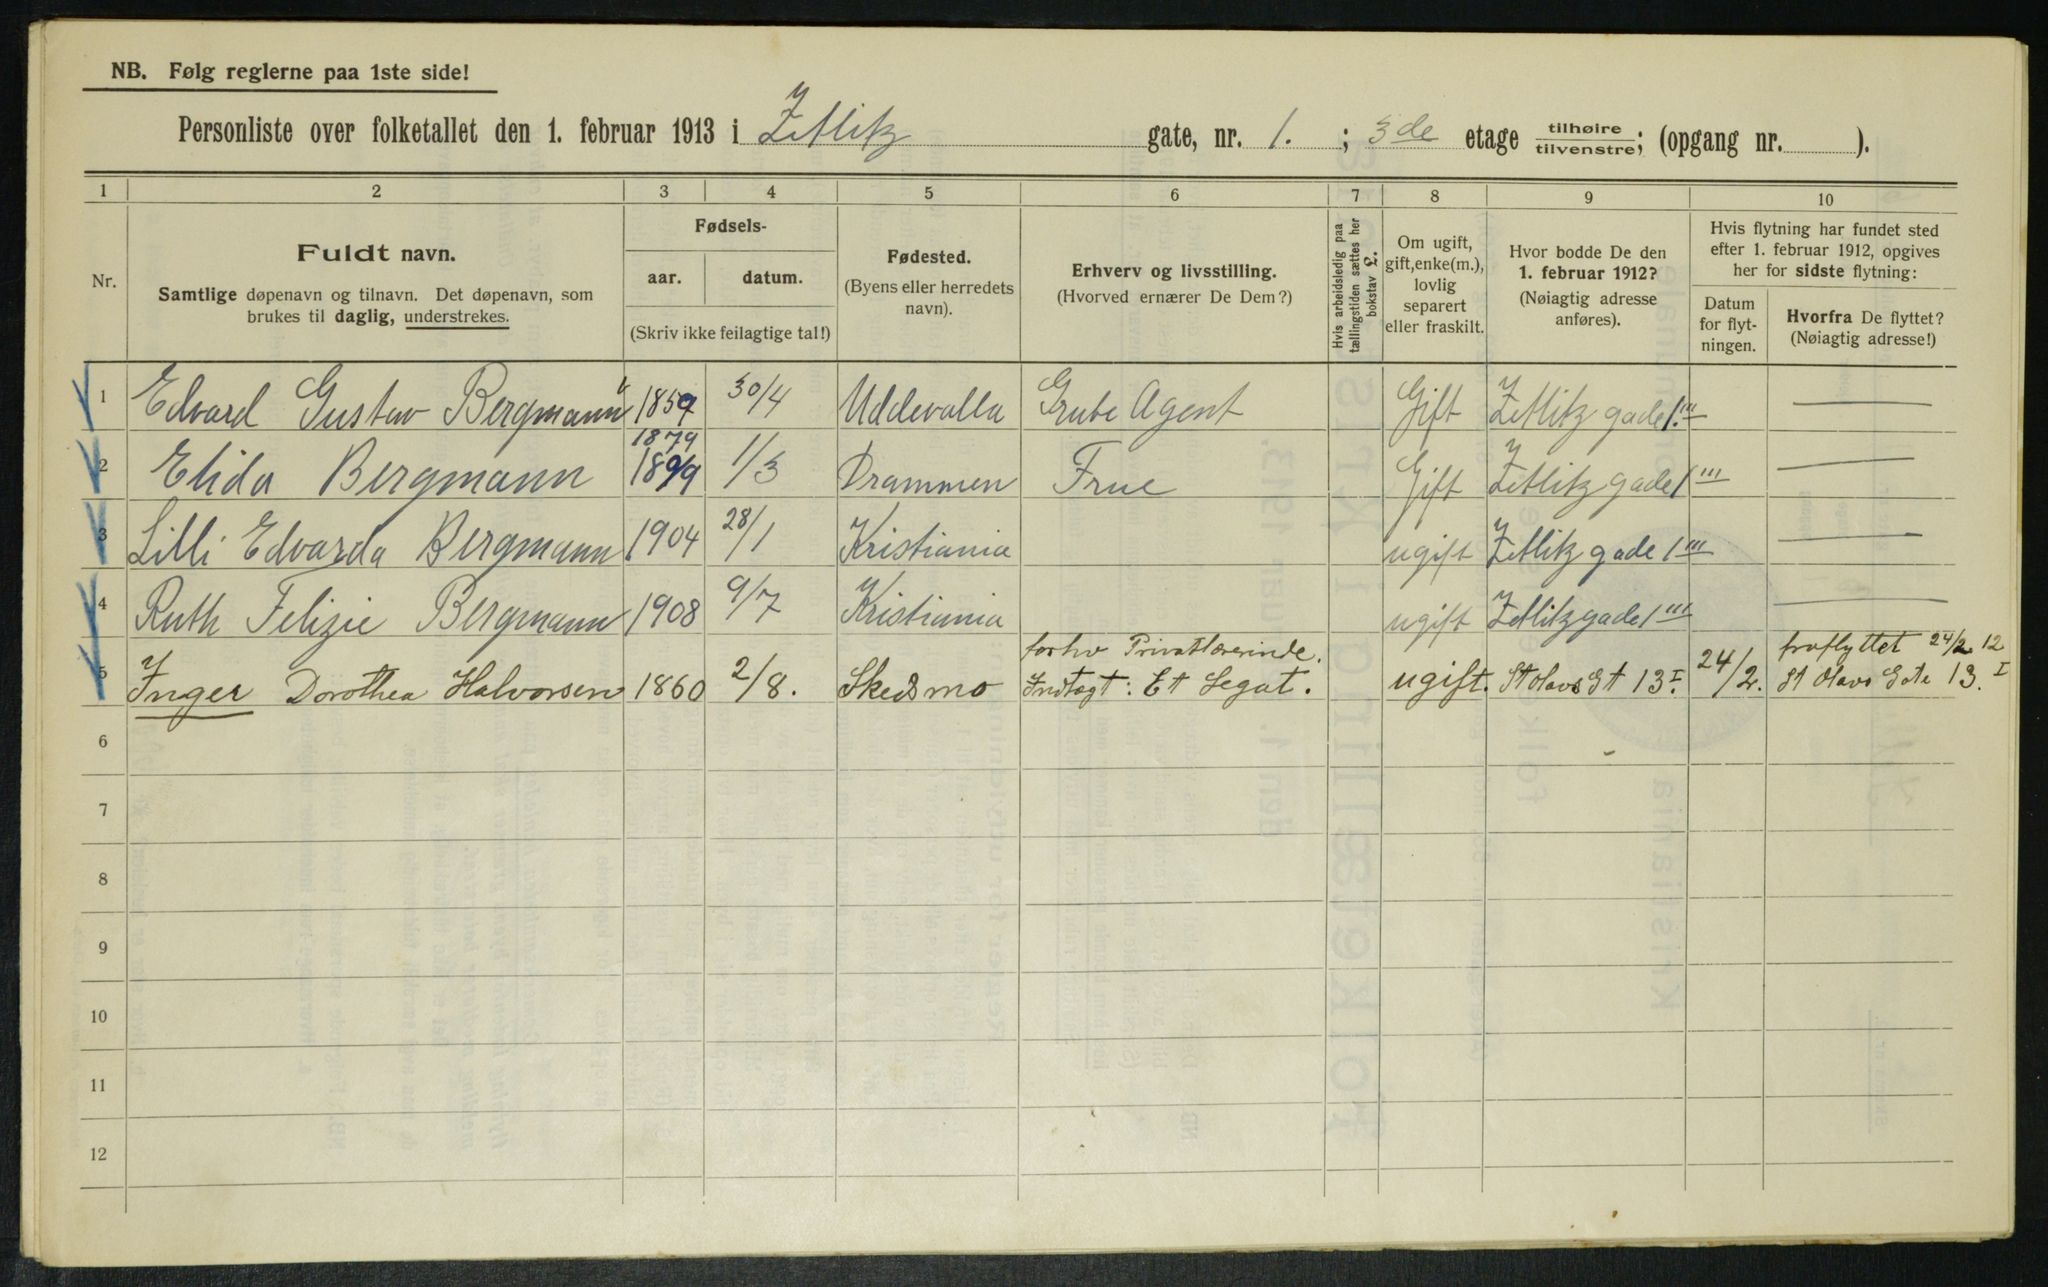 NB. Følg reglerne paa 1ste side!
Personliste over folketallet den 1. februar 1913 i Zetlitz gate, nr. 1. ; 3de etage tilhøire tilvenstre; (opgang nr. ).
1 2 3 4 5 6 7 8 9 10
Nr.
Fuldt navn.
Samtlige døpenavn og tilnavn. Det døpenavn, som
brukes til daglig, understrekes.
Fødsels-
aar. datum.
(Skriv ikke feilagtige tal!)
Fødested.
(Byens eller herredets
navn).
Erhverv og livsstilling.
(Hvorved ernærer De Dem?)
Hvis arbeidsledig paa
tællingstiden sættes her
bokstav L.
Om ugift,
gift, enke(m.),
lovlig
separert
eller fraskilt.
Hvor bodde De den
1. februar 1912?
(Nøiagtig adresse
anføres).
Hvis flytning har fundet sted
efter 1. februar 1912, opgives
her for sidste flytning:
Datum
for flyt-
ningen.
Hvorfra De flyttet?
(Nøiagtig adresse!)
1 Edvard Gustav Bergmann 1859 30/4 Uddevalla Grube Agent Gift Zetlitz gade 1. III
1879
2 Elida Bergmann 1899 1/3 Drammen Frue Gift Zetlitz gade 1 III
3 Lilli Edvarda Bergmann 1904 28/1 Kristiania ugift Zetlitz gade 1 III
4 Ruth Felizie Bergmann 1908 9/7 Kristiania ugift Zetlitz gade 1 III
forhv Privatlærerinde. fraflyttet 24/2 12
5 Inger Dorothea Halvorsen 1860 2/8. Skedsmo Indtægt: Et Legat. ugift. St Olavs Gt 13 I. 24/2. St Olavs Gate 13. I
6
7
8
9
10
11
12